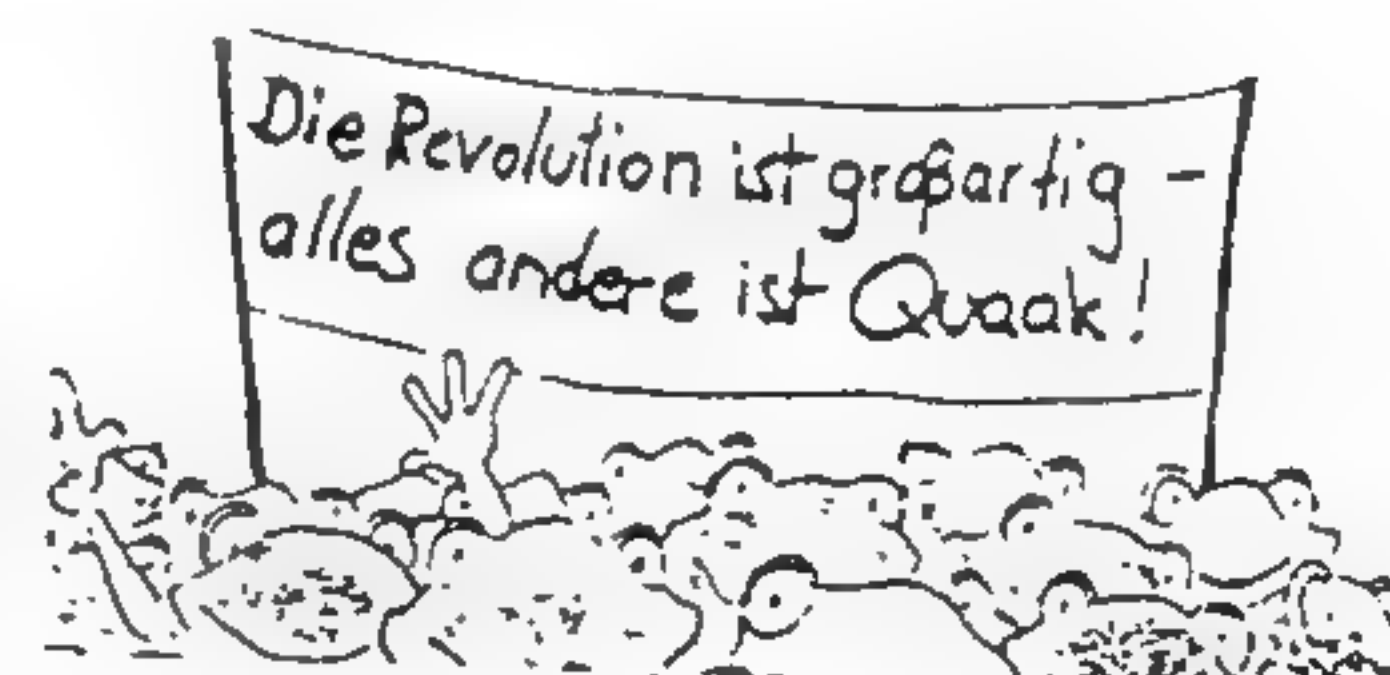 Die Revolution ist großartig -
alles andere ist Quaak!